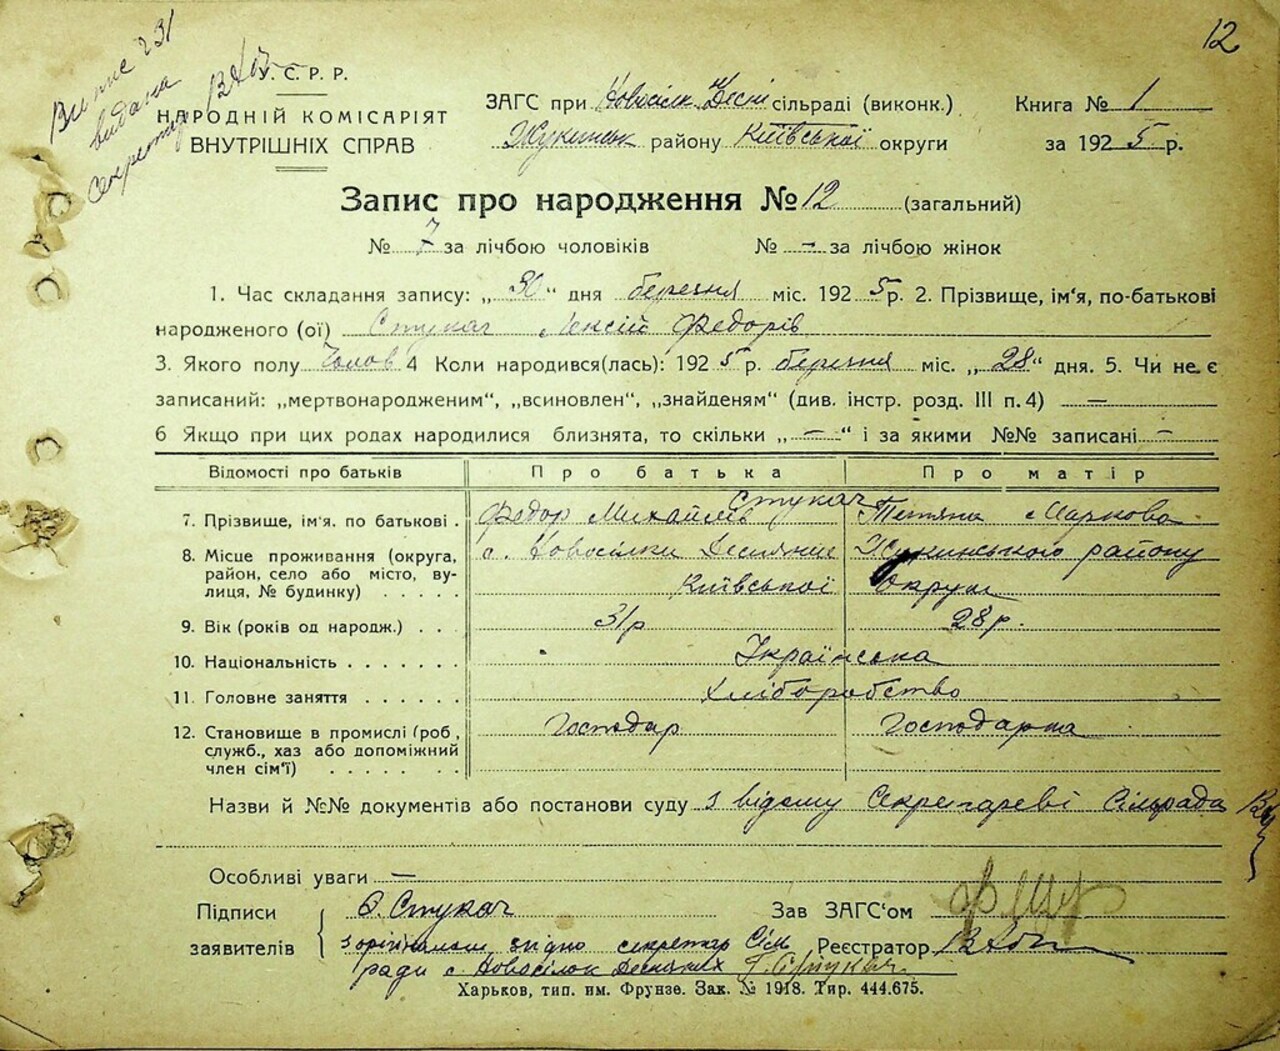 12
Випис 231
видана
секретар
У. С. Р. Р.
НАРОДНІЙ КОМІСАРІЯТ
ВНУТРІШНІХ СПРАВ
ЗАГС при Новосілк Десн сільраді (виконк.)
Книга № 1
Жукинськ району Київської округи
за 1925 р.
Запис про народження № 12 (загальний)
№ 7 за лічбою чоловіків № — за лічбою жінок
1. Час складання запису: „30“ дня березня міс. 1925 р. 2. Прізвище, ім'я, по-батькові
народженого (ої) Стукач Лексій Федорів
3. Якого полу Чолов 4 Коли народився(лась): 1925 р. березня міс. „28“ дня. 5. Чи не є
записаний: „мертвонародженим“, „всиновлен“, „знайденям“ (див. інстр. розд. III п. 4) —
6 Якщо при цих родах народилися близнята, то скільки „—“ і за якими №№ записані —
Відомості про батьків Про батька Про матір
7. Прізвище, ім'я. по батькові . Федор Михайлів Стукач Тетяна Маркова
8. Місце проживання (округа, с. Новосілки Деснянські Жукинського району
район, село або місто, ву-
лиця, № будинку) . . . . . Київської Округи
9. Вік (років од народж.) . . . 31 р 28 р.
10. Національність . . . . . . . Українська
11. Головне заняття . . . . . . Хліборобство
12. Становище в промислі (роб, Господар Господарка
служб., хаз або допоміжний
член сім'ї) . . . . . . .
Назви й №№ документів або постанови суду з відому Секретареві Сільрада
Особливі уваги —
Підписи Ф. Стукач Зав ЗАГС'ом
заявителів з орігіналом згідно секретар Сіль Реєстратор
ради с Новосілок Деснянських
Харьков, тип. им. Фрунзе. Зак. № 1918. Тир. 444.675.